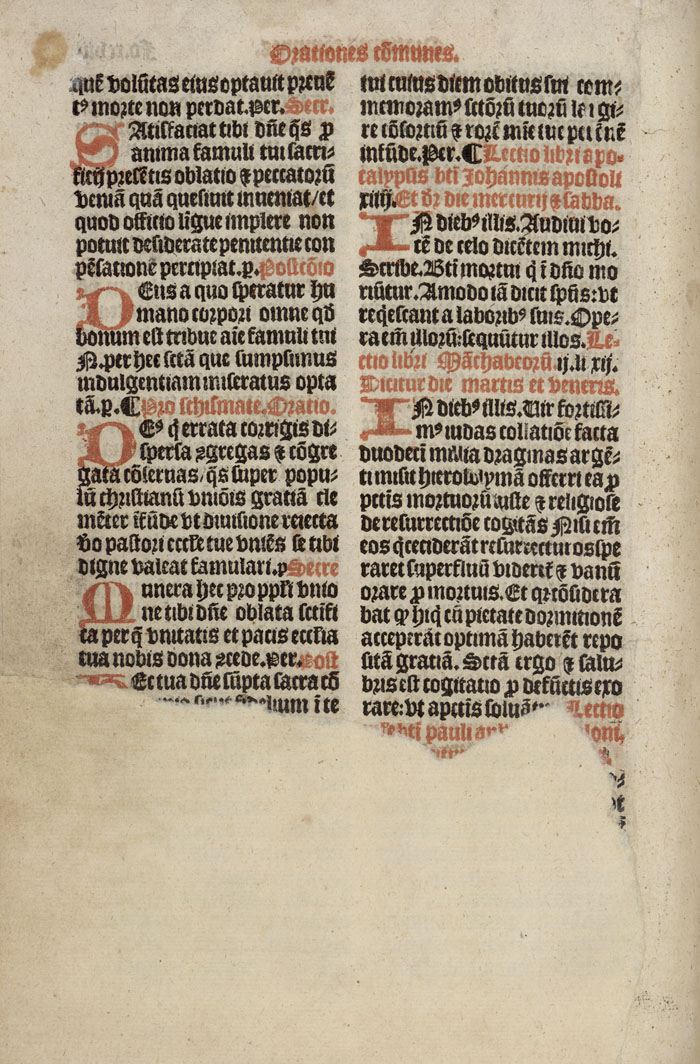 Orationes cōmunes.
quē volūtas eius optauit preuē
tꝰ morte non perdat. Per. Secr.
SAtisfaciat tibi dn̄e q̄s ꝓ
anima famuli tui sacri-
ficij presētis oblatio ⁊ peccatorū
veniā quā quesiuit inueniat/et
quod officio līgue implere non
potuit desiderate penitentie con
pēsatione percipiat. p. Postcōio
DEus a quo speratur hu
mano corpori omne qd̄
bonum est tribue aīe famuli tui
N. per hec sctā que sumpsimus
indulgentiam miseratus opta
tā. p. ¶ Pro schismate. Oratio.
DEꝰ q̄ errata corrigis di-
spersa ꝯgregas ⁊ cōgre
gata cōseruas, q̄s super popu-
lū christianū vniōis gratiā cle
mēter īfūde vt diuisione reiecta
v̄o pastori eccl̄ie tue vniēs se tibi
digne valeat famulari. p Secre
MUnera hec pro pp̄li vnio
ne tibi dn̄e oblata sctīfi
ca per q̄ vnitatis et pacis eccl̄ia
tua nobis dona ꝯcede. Per. Post
Ec tua dn̄e sūpta sacra cō
sicut fidelium ī te
tui cuius diem obitus sui com-
memoramꝰ sctōrū tuorū
re cōsortiū ⁊ rorē
infūde. Per. ¶ Lectio libri apo-
calypsis bt̄i Johannis apostoli
xiiij. Et dr̄ die mercurij ⁊ sabba.
IN diebꝰ illis. Audiui vo-
cē de celo dicētem michi.
Scribe. Bt̄i mortui q̄ ī dn̄o mo
riūtur. Amodo iā dicit sp̄ūs: vt
reqͥescant a laboribꝰ suis. Ope-
ra em̄ illorū: sequūtur illos. Le-
ctio libri Māchabeorū ij. li xij.
Dicitur die martis et veneris.
IN diebꝰ illis. Uir fortissi-
mꝰ iudas collatiōe facta
duodecī milia dragmas argē-
ti misit hierosolymā offerri ea ꝓ
pctīs mortuorū iuste ⁊ religiose
de resurrectiōe cogitās Nisi em̄
eos q̄ ceciderāt resurrecturos spe
raret superfluū videret̄ ⁊ vanū
orare ꝓ mortuis. Et qꝛ cōsidera
bat ꝙ hi q̄ cū pietate dormitionē
acceperāt optimā haberēt repo
sitā gratiā. Sctā ergo ⁊ salu-
bris est cogitatio ꝓ defūctis exo
rare: vt a pctīs soluāt Lectio
bt̄i pauli